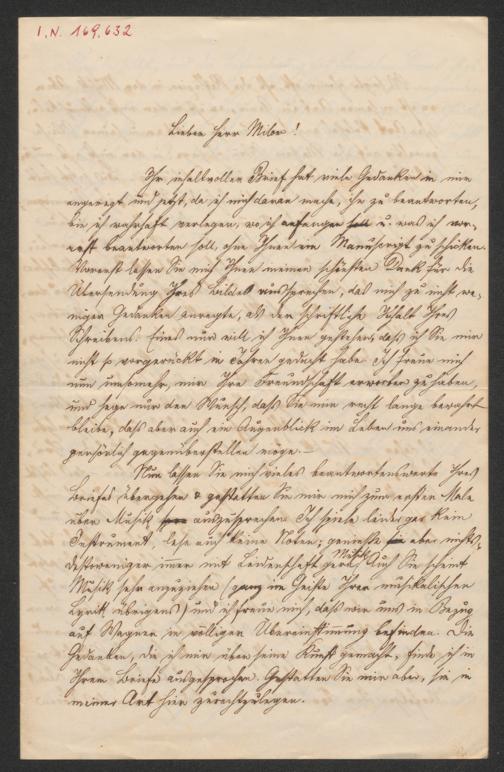 I.N. 169.632
Lieber Herr Milow!
Ihr inhaltvoller Brief hat viele Gedanken in mir
angeregt und jetzt, da ich mich daran mache, ihn zu beantworten,
bin ich wahrhaft verlegen, wo ich anfangen soll u. was ich vor-
erst beantworten soll, ohne Ihnen ein Manuscript zu schicken.
Vorerst lassen Sie mich Ihnen meinen schönsten Dank für die
Übersendung Ihres Bildes aussprechen, das mich zu nicht we-
niger Gedanken anregte, als der schriftliche Inhalt Ihres
Schreibens. Eines nur will ich Ihnen gestehen, daß ich Sie mir
nicht so vorgerückt in Jahren gedacht habe. Ich freue mich
nun umsomehr, mir Ihre Freundschaft erworben zu haben,
und hege nur den Wunsch, daß Sie mir recht lange bewahrt
bleibe, daß aber auch ein Augenblick im Leben uns einander
persönlich gegenüberstellen möge. –
Nun lassen Sie mich vieles beantwortenswerte Ihres
Briefes übergehen & gestatten Sie mir mich zum ersten Male
über Musik auszusprechen. Ich spiele leider gar kein
Instrument, lese auch keine Noten; genieße aber nichts-
destoweniger immer mit Leidenschaft gern Musik. Auch Sie scheint
Musik sehr anzuziehen (ganz im Geiste Ihrer musikalischen
Lyrik übrigens) und ich freue mich, daß wir uns in Bezug
auf Wagner in völligem Übereinstimmung befinden. Die
Gedanken, die ich mir über seine Kunst gemacht, finde ich in
Ihrem Briefe ausgesprochen. Gestatten Sie mir aber, sie in
meiner Art hier zurechtzulegen.